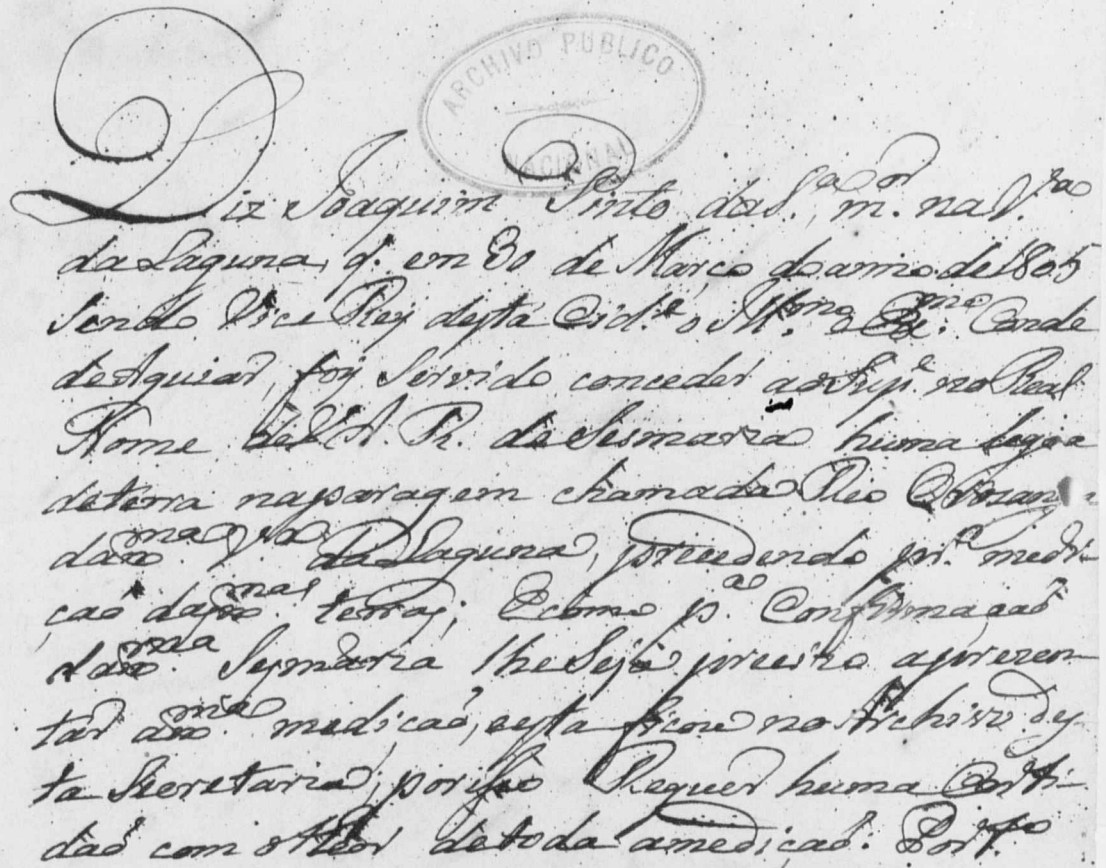 ARCHIVO PUBLICO
NACIONAL
Diz Joaquim Pinto da S.ª, m.or na V.ª
da Laguna, q. em 30 de Março do anno de 1805
sendo Vice Rey desta Cid.e o Ill.mo e Ex.mo Conde
de Aguiar, foy servido conceder ao Sup.e no Real
Nome de S. A. R. de Sesmaria huma legoa
de terra na paragem chamada Rio
da m.ma V.ª da Laguna, precedendo pr.º medi-
çaõ das m.mas terras; E como p.ª Confirmaçaõ
da m.ma Sesmaria lhe seja precizo aprezen-
tar a m.ma mediçaõ, e esta ficou no Archivo des-
ta Secretaria, por isso Requer huma Certi-
daõ com o theor de toda a mediçaõ. Port.to